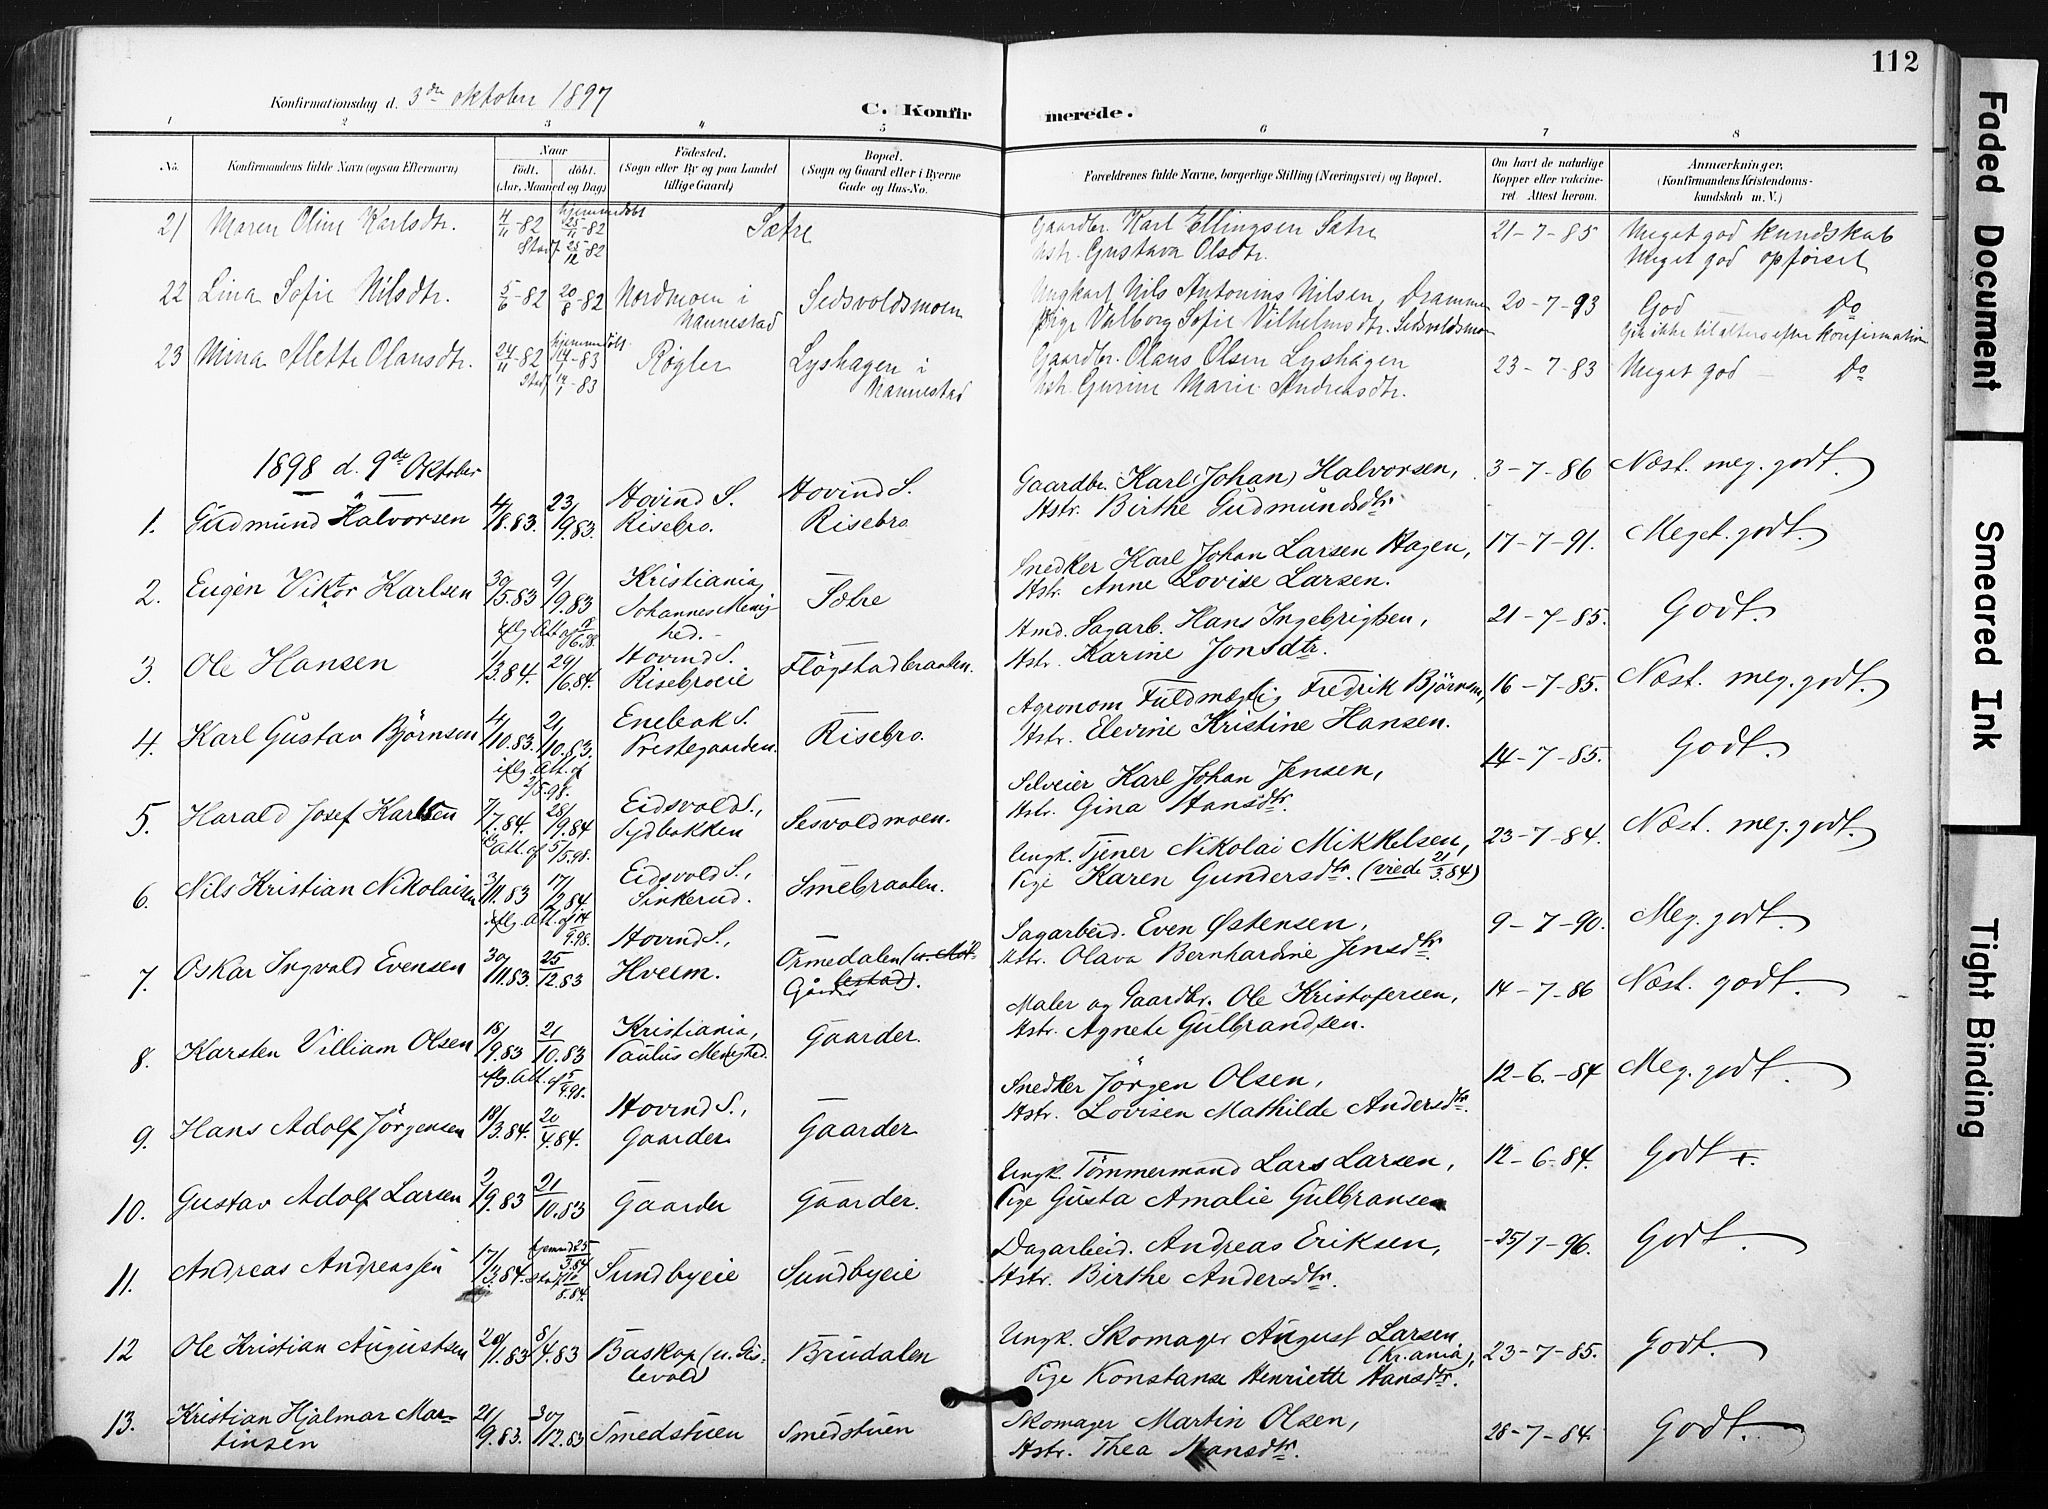 112
Konfirmationsdag d. 3die oktober 1897
C. Konfirmerede.
1 2 3 4 5 6 7 8
No. Konfirmandens fulde Navn (ogsaa Efternavn) Naar Født. døbt. (Aar, Maaned og Dag) Fødested. (Sogn eller By og paa Landet tillige Gaard) Bopæl. (Sogn og Gaard eller i Byerne Gade og Hus-No. Forældrenes fulde Navne, borgerlige Stilling (Næringsvei) og Bopæl. Om havt de naturlige Kopper eller vakcineret Attest herom. Anmærkninger. (Konfirmandens Kristendomskundskab m. V.)
21 Maren Oline Karlsdtr. 4/11-82 hjemmedøbt 25/11-82 Stadf. 25/12-82 Sætre Gaardbr. Karl Ellingsen Sætre 21-7-85 Meget god kundskab
Hstr. Gustava Olsdtr. Meget god opførsel
22 Lina Sofie Nilsdtr. 5/6-82 20/8-82 Nordmoen i Nannestad Sedsvoldsmoen Ungkarl Nils Antonius Nilsen, Drammen 20-7-93 God Do
Pige Valborg Sofie Vilhelmsdtr. Sedsvoldsmo Gik ikke til alters efter konfirmation
23 Mina Alette Olausdtr. 24/11-82 hjemmedøbt 14/1-83 Stadf. 14/1-83 Røgler Lyshagen i Nannestad Gaardbr. Olaus Olsen Lyshagen 23-7-83 Meget god - Do
Hstr. Gurine Marie Andreasdtr.
1898 d. 9de Oktober
1. Gudmund Halvorsen 4/8.83. 23/9.83. Hovind S. Risebro. Hovind S. Risebro Gaardbr. Karl (Johan) Halvorsen, 3-7-86 Næst. meg. godt.
Hstr. Birthe Gudmundsdtr
2. Eugén Viktor Karlsen 30/5.83 9/9.83 Kristiania, Johannes Menighed. Sætre Snedker Karl Johan Larsen Hagen, 17-7-91. Meget. godt.
iflg. Att. af 8/6.98. Hstr. Anne Lovise Larsen.
3. Ole Hansen 1/3.84. 29/6.84. Hovind S. Risebroeie Fløgstadbraaten. Hmd. Sagarb. Hans Ingebrigtsen, 21-7-85. Godt.
Hstr. Karine Jonsdtr.
4. Karl Gustav Bjørnsen 4/10.83. 21/10.83. Enebak S. Prestegaarden. Risebro. Agronom Fuldmægtig Fredrik Bjørnsen, 16-7-85. Næst. meg. godt.
iflg. Att. af 2/5.98. Hstr. Elevine Kristine Hansen.
5. Harald Josef Karlsen 7/7.84. 28/9.84 Eidsvold S., Sydbakken Sesvoldmoen. Selveier Karl Johan Jensen, 14-7-85. Godt.
Att. af 5/5.98. Hstr. Gina Hansdtr.
6. Nils Kristian Nikolaisen 3/11.83 17/2.84 Eidsvold S., Sinkerud. Smebraaten. Ungk. Tjener Nikolai Mikkelsen, 23-7-84. Næst. meg. godt.
iflg. Att. af 14/9.98. Pige Karen Gundersdtr. (viede 21/3.84)
7. Oskar Ingvald Evensen 30/11.83. 25/12.83 Hovind S., Hverm. Ormedalen Gårder Sagarbeid. Even Østensen, 9-7-90. Meg. godt.
Hstr. Olava Bernhardine Jensdtr.
8. Karsten Villiam Olsen 18/9.83 21/10.83 Kristiania, Paulus Menighed. Gaarder. Maler og Gaardbr. Ole Kristofersen, 14-7-86 Næst. godt.
iflg. Att. af 5/9.98. Hstr. Agnete Gulbrandsen.
9. Hans Adolf Jörgensen 18/3.84. 20/4.84. Hovind S., Gaarder Gaarder Snedker Jörgen Olsen, 12-6.-84 Meg. godt.
Hstr. Lovisen Mathilde Andersdtr.
10. Gustav Adolf Larsen 2/9.83 21/10.83 Gaarder Gaarder. Ungk. Tömmermand Lars Larsen, 12-6-84. Godt.
Pige Gusta Amalie Gulbransen
11. Andreas Andreassen 17/3.84. hjemmd 25/3.84 stadf. 10/8.84. Sundbyeie Sundbyeie Dagarbeid. Andreas Eriksen, -25/7-96. Godt.
Hstr. Birthe Andersdtr.
12 Ole Kristian Augustsen 20/1.83 8/4.83 Baskop (u. Gislevold) Brudalen Ungk. Skomager August Larsen (Kr.ania), 23-7-85. Godt.
Pige Konstanse Henriette Hansdtr.
13. Kristian Hjalmar Martinsen 21/9.83. 30/12.83 Smedstuen Smedstuen Skomager Martin Olsen, 28-7-84. Godt.
Hstr. Thea Hansdtr.
Faded Document
Smeared Ink
Tight Binding